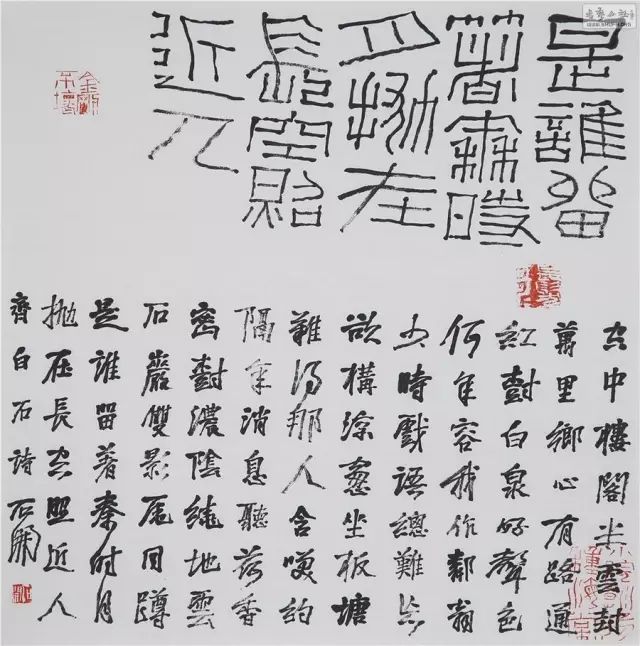 是誰留
著秦時
月拋在
長空照
近人
金剛
不壞
空中樓閣半雲封
萬里鄉心有路通
紅樹白泉好聲色
何年容我作鄰翁
少時戲語總難忘
欲構涼窗坐板塘
難得那人含咲約
隔年消息聽荷香
密樹濃陰繞地雲
石巖雙影尾同蹲
是誰留著秦時月
拋在長空照近人
齊白石詩 石開